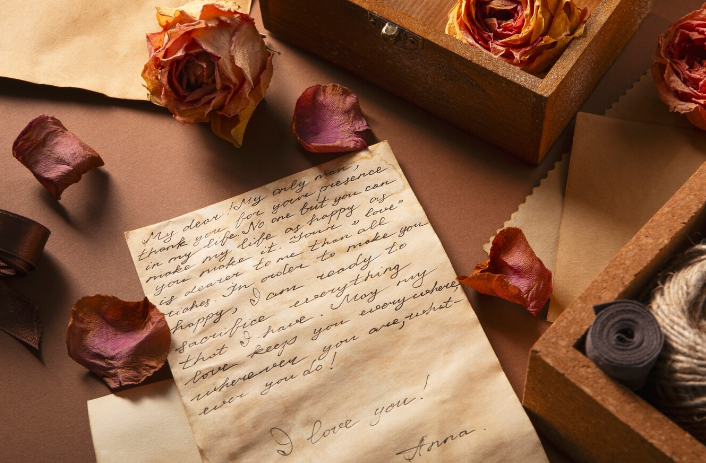 My dear! My only man,
thank you for your presence
in my life. No one but you can
make my life as happy as
you make it. Your "love"
is dearer to me than all
riches. In order to make you
happy, I am ready to
sacrifice everything
that I have. May my
love keeps you everywhere,
wherever you are, what-
ever you do!
I love you!
Anna.